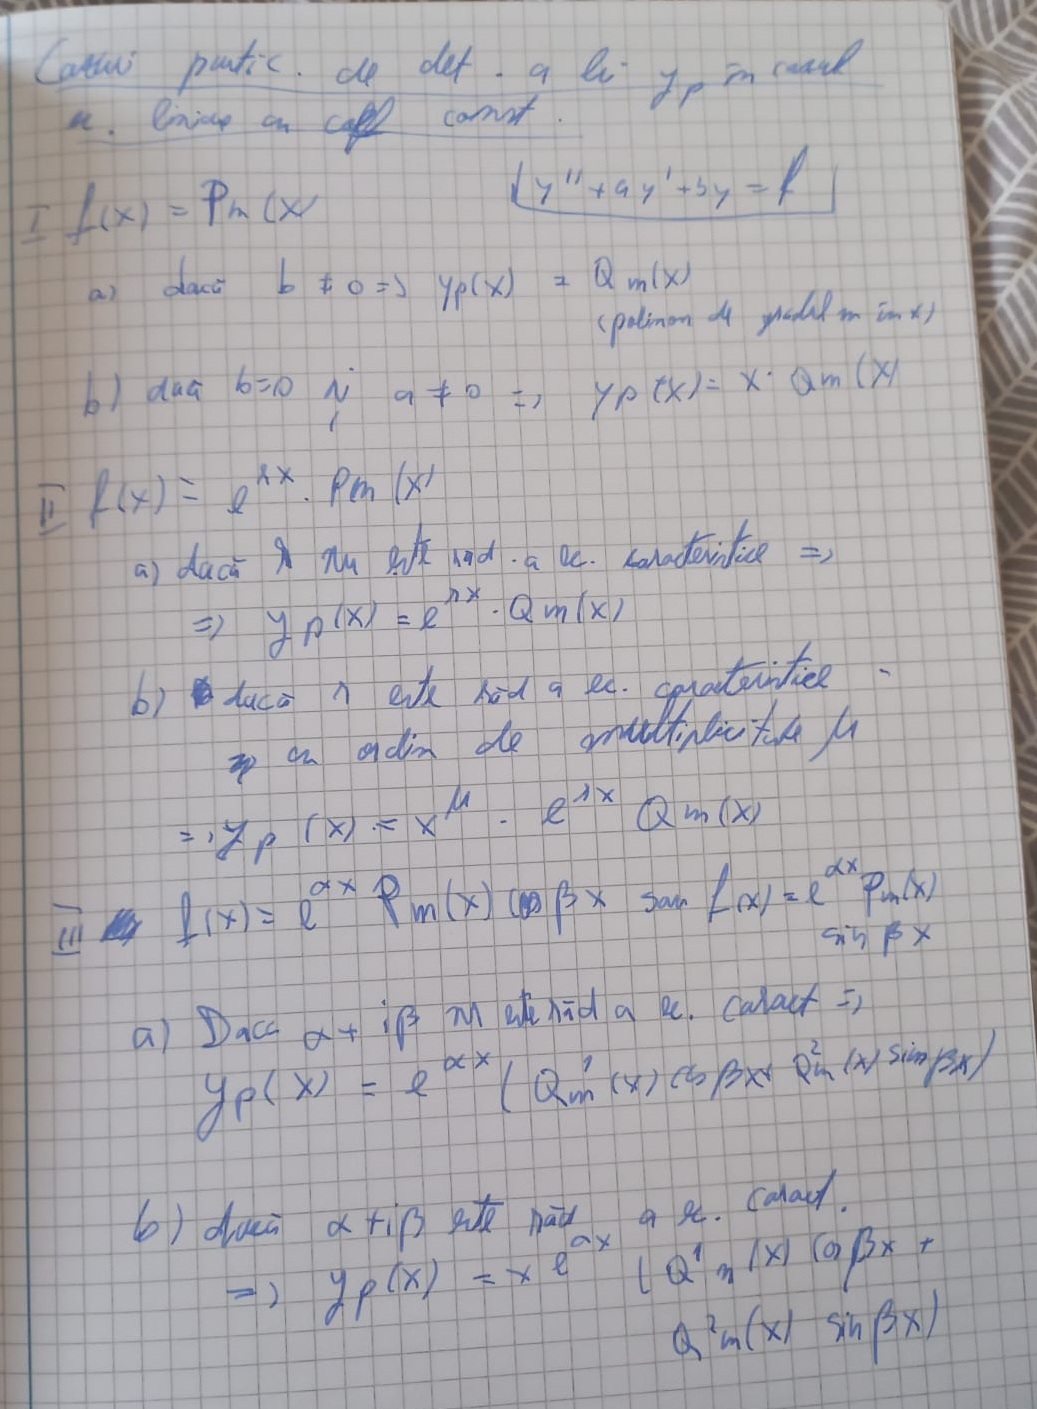 Cazuri partic. de det. a lui yp în cazul
ec. liniare cu coef const.
y'' + ay' + by = f
I f(x) = Pm(x)
a) dacă b ≠ 0 => yp(x) = Qm(x)
(polinom de gradul m în x)
b) dacă b=0 și a ≠ 0 => yp(x) = x · Qm(x)
II f(x) = e^{λx} · Pm(x)
a) dacă λ nu este răd. a ec. caracteristice =>
=> yp(x) = e^{λx} · Qm(x)
b) dacă λ este răd a ec. caracteristice
cu ordin de multiplicitate μ
=> yp(x) = x^μ · e^{λx} Qm(x)
III f(x) = e^{αx} Pm(x) cos βx sau f(x) = e^{αx} Pm(x)
sin βx
a) Dacă α + iβ nu este răd a ec. caract =>
yp(x) = e^{αx} (Q^1m(x) cos βx + Q^2m(x) sin βx)
b) dacă α + iβ este răd a ec. caract.
=> yp(x) = x e^{αx} (Q^1m(x) cos βx +
Q^2m(x) sin βx)